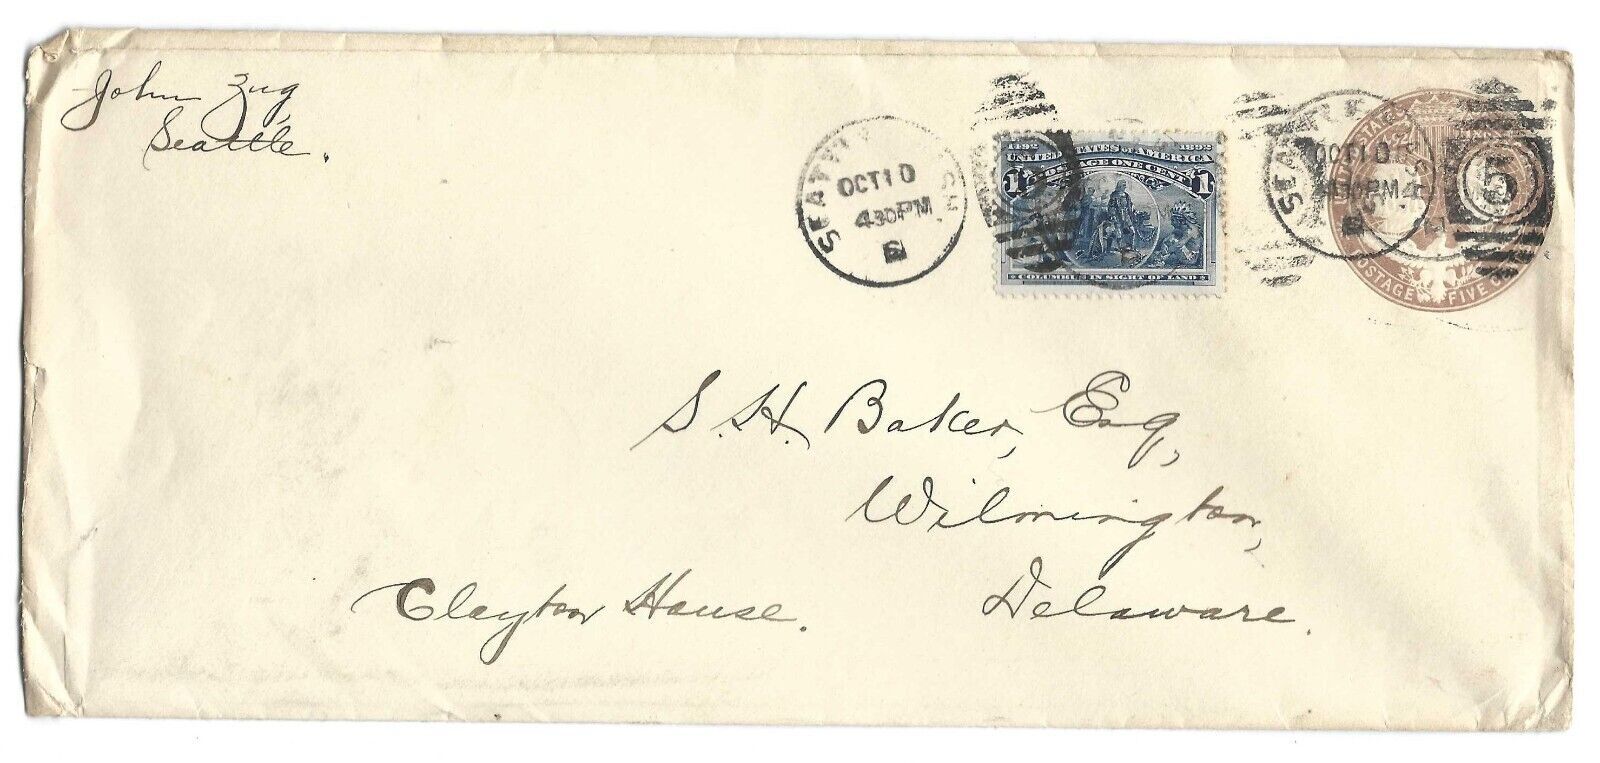 John Zug,
Seattle.
SEATT
OCT 10
430PM
1492 1892
UNITED STATES OF AMERICA
POSTAGE ONE CENT
1 1
COLUMBUS IN SIGHT OF LAND
SEATT
OCT 10
430PM
5
POSTAGE FIVE C
S. H. Baker, Esq,
Wilmington,
Clayton House. Delaware.